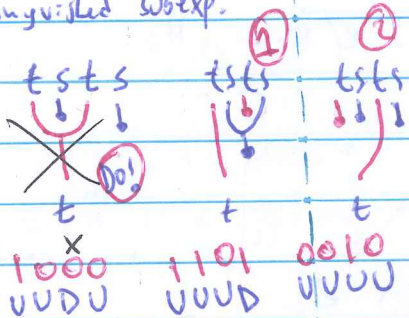 subexp.
1 2
tsts tsts tsts
Do!
t t t
x
1000 1101 0010
UUDU UUUD UUUU